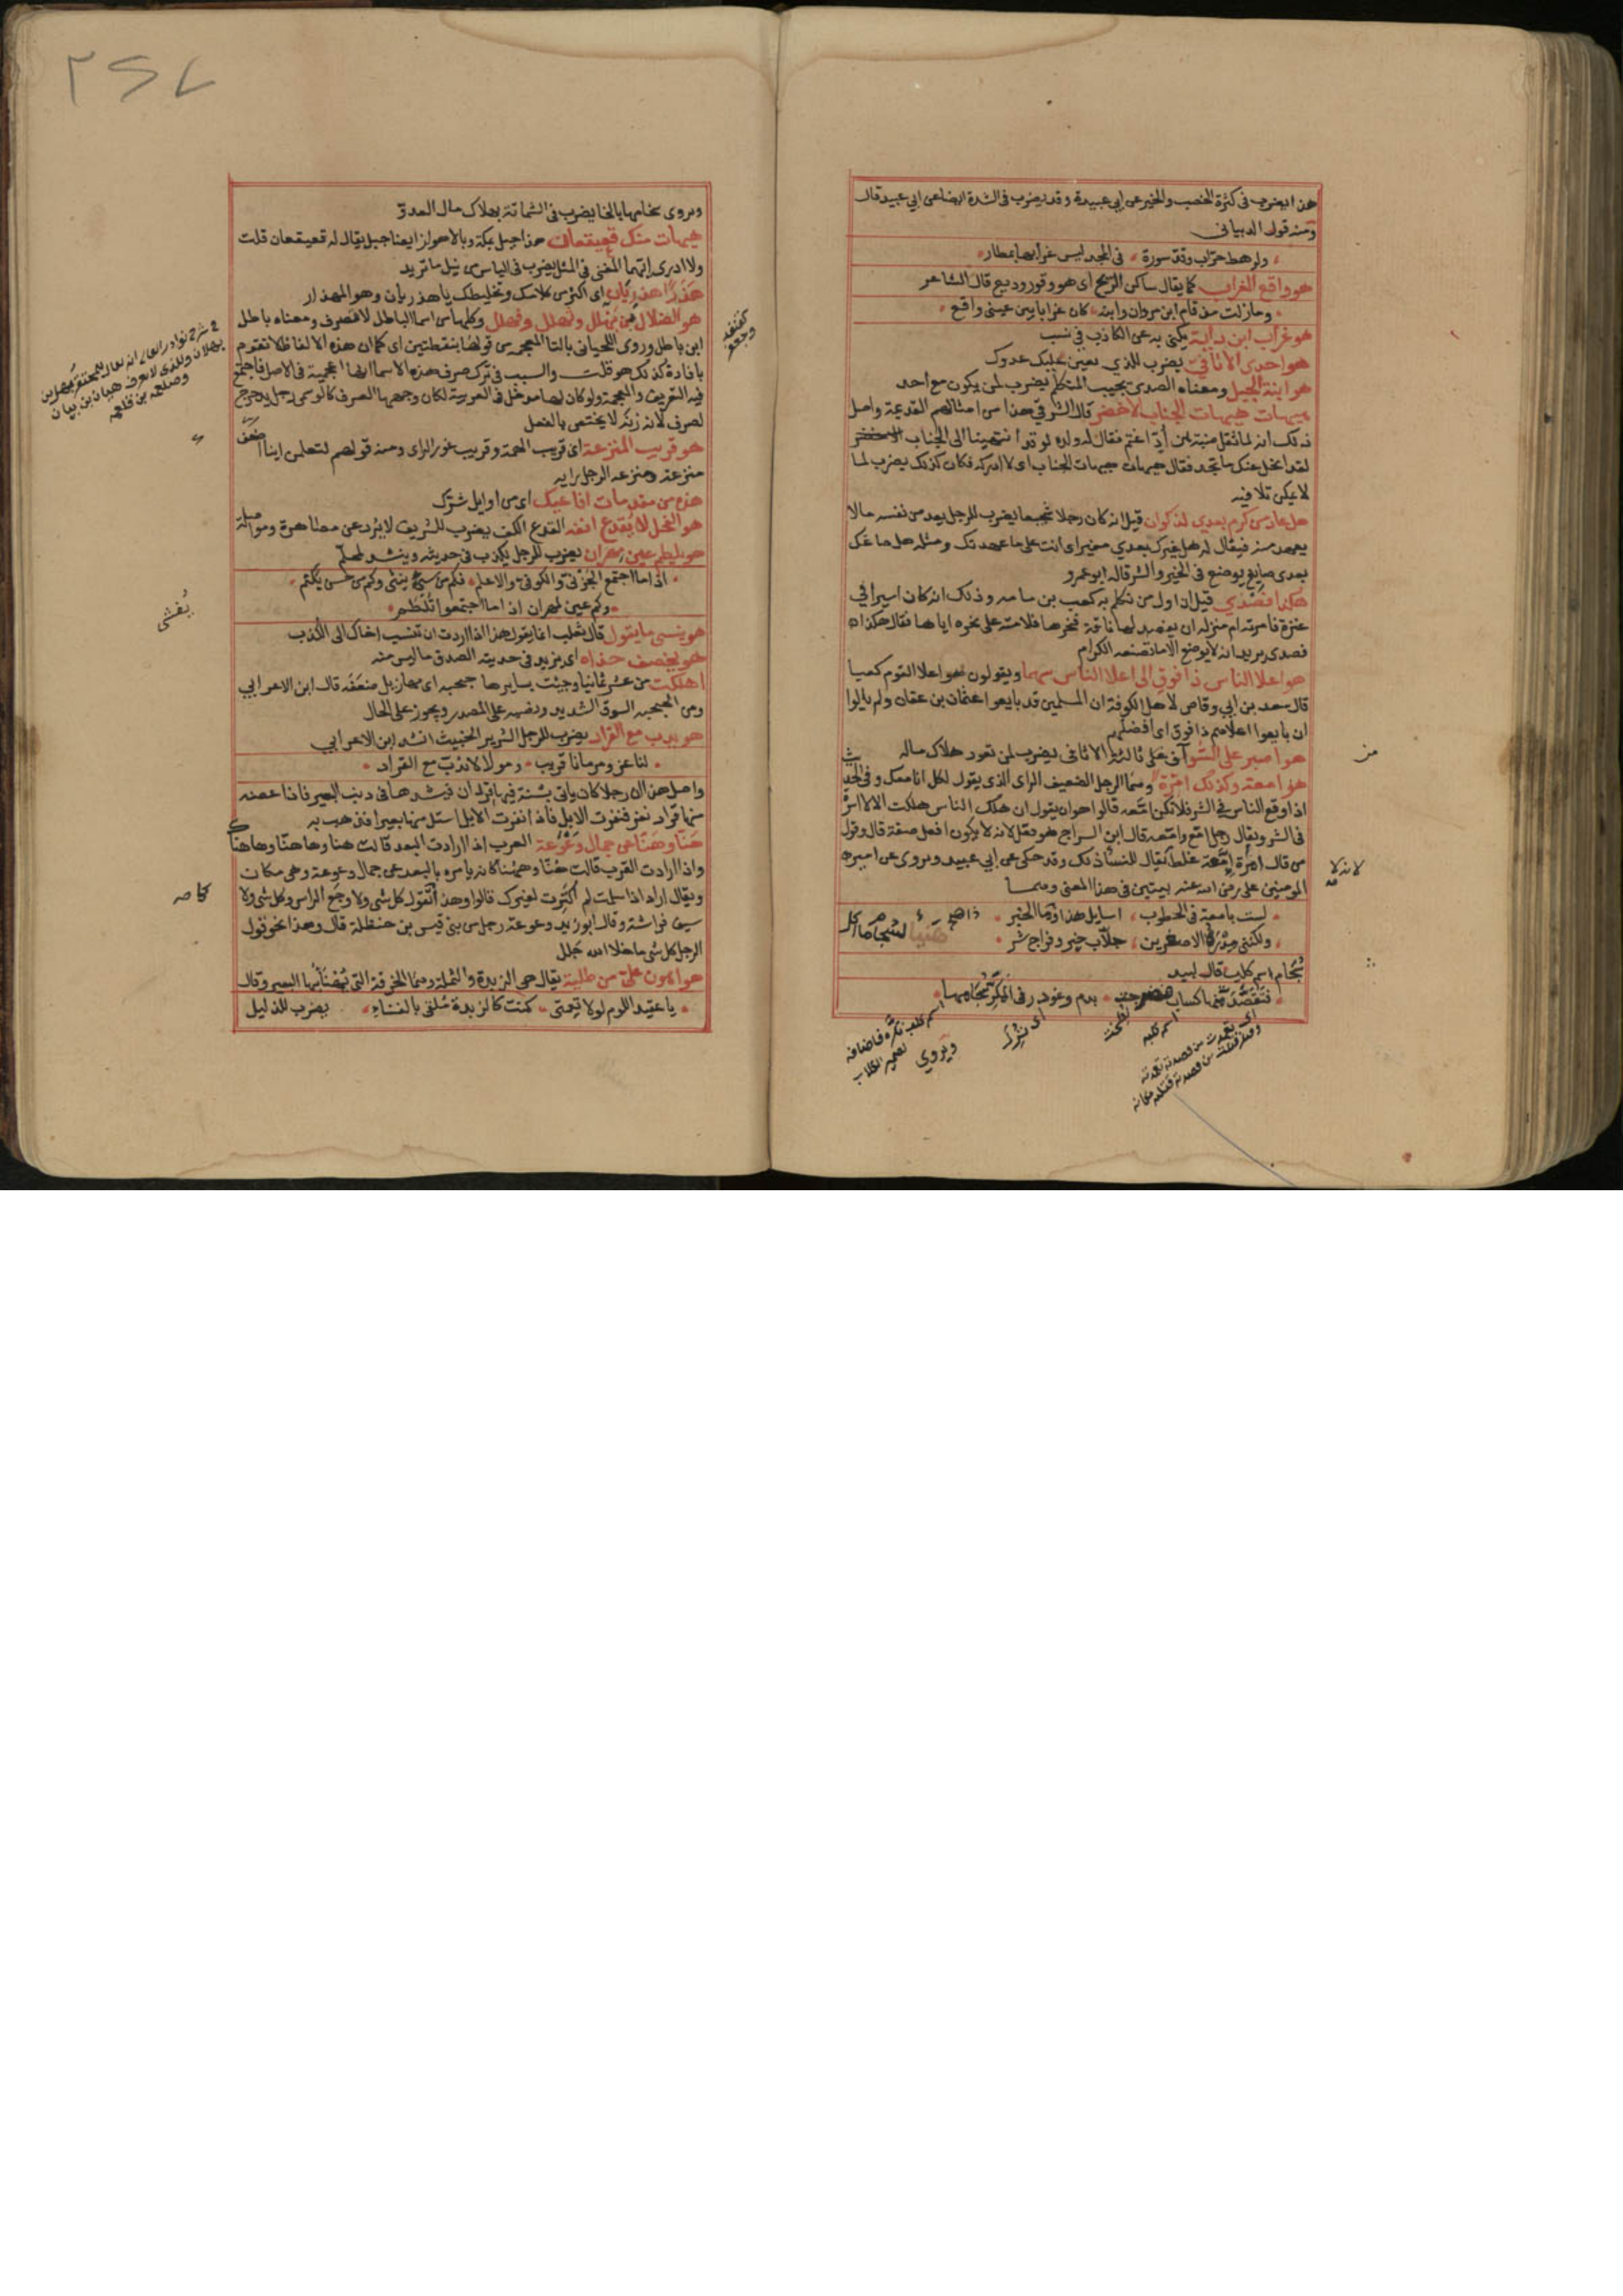 هذا يضرب فى كثرة الخصب والخير عن ابى عبيدة وقد يضرب فى الشدة ايضا عن ابي عبيد قال
ومنه قول الذبيانى
ولرهط حرّاب وقدّ سورة فى المجد ليس غرابها بمطار
هو واقع الغراب كما يقال ساكن الريح اى هو وقور وديع قال الشاعر
ومازلت مذ قام ابن مروان وابنه كان غرابا بين عينى واقع
هو غراب ابن داية يكنى به عن الكاذب فى نسب
هو احدى الاثافى يضرب للذي يعين عليك عدوك
هو ابنة الجبل ومعناه الصدى يجيب المتكلم يضرب لمن يكون مع احد
هيهات هيهات الجناب الاخضر قال الشرقي هذا من امثالهم القديمة واصل
ذلك انه لما ثقل ضبة بن أدّ اغتم فقال له ولده لو قد انتهينا الى الجناب الاخضر
لقد انحل عنك ما تجد فقال هيهات هيهات الجناب اى لا ادركه فكان كذلك يضرب لما
لا يمكن تلافيه
هل عاد من كرم بعدي لذكوان قيل انه كان رجلا شحيحا يضرب للرجل يعد من نفسه ما لا
يعهد منه فيقال له هل غيرك بعدي مغير اى انت على ما عهدتك ومثله هل صاغك
بعدى صايغ يوضع فى الخير والشر قاله ابو عمرو
هكذا فصدي قيل ان اول من تكلم به كعب بن مامه وذلك انه كان اسيرا في
عنزة فامرته ام منزله ان يفصد لها ناقة فنحرها فلامته على نحره اياها فقال هكذا
فصدى يريد انه لا يصنع الا ما تصنعه الكرام
هو اعلا الناس ذا فوق اى اعلا الناس سهما ويقولون هو اعلا القوم كعبا
قال سعد بن ابي وقاص لاهل الكوفة ان المسلمين قد بايعوا عثمان بن عفان ولم يالوا
ان بايعوا اعلاهم ذا فوق اى افضلهم
هو اصبر على السّوآفى على ثالثة الاثافى يضرب لمن تعود هلاك ماله
هو امعة وكذلك امّرة وهما الرجل الضعيف الراى الذي يقول لكل انا معك وفى الحديث
اذا وقع الناس فى الشر فلا تكن امّعه قالوا هو ان يقول ان هلك الناس هلكت
فى الشر ويقال رجل امع وامّعه قال ابن السراج هو فعّل لانه لا يكون افعل صفة قال وقول
من قال امرأة امّعة غلط لا يقال للنساء ذلك وقد حكى عن ابي عبيد ويروى عن امير
المومنين على رضى الله عنه بيتين فى هذا المعنى وهما
لست بامعة فى الخطوب اسايل هذا وذا ما الخبر
ولكننى مدره الاصغرين جلّاب خير وفراج شر
هنيا لسحام ما اكل
سحام اسم كلب قال لبيد
فتقصّدت منها كساب فضرجت بدم وغودر فى المكرّ سحامها
اسم كلب
اى ترك
ويروي
لانه لا
ويروى سخامها بالخا يضرب فى الشماتة بهلاك مال العدوّ
هيهات منك قعيقعان هذا جبل بمكة وبالاهواز ايضا جبل يقال له قعيقعان قلت
ولا ادري ايّهما المعنى فى المثل يضرب فى الياس من نيل ما تريد
هذرًا هذريان اى اكثر من كلامك وتخليطك يا هذريان وهو المهذار
هو الضلال بن بهلل وثهلل وفهلل وكلها من اسما الباطل لا تصرف ومعناه باطل
ابن باطل وروى اللحيانى بالتا المعجمه من فوقها بنقطتين اى كما ان هذه الالفاظ لا تقوم
بافادة كذلك هو قلت والسبب فى ترك صرف هذه الاسما انها اعجمية فى الاصل فاجتمع
فيه التعريف والعجمة ولو كان لها مدخل فى العربية لكان
لصرف لانه زنة لا يختص بالفعل
هو قريب المنزعة اى قريب الهمة وقريب غور الراى ومنه قولهم لتعلمن اينا اضعف
منزعة ومنزعه الرجل رايه
هذه من مقدمات افاعيك اى من اوايل شرّك
هو الفحل لا يُقدع انفه القدع الكف يضرب للشريف لا يردّ عن مصاهرة ومواصلة
هو يلطم عين مهران يضرب للرجل يكذب فى حديثه وينشد
اذا ما اجتمع والكوفى والاعلم فكم من سيئ يفشى وكم من حسن يكتم
وكم عين لمهران اذا ما اجتمعوا تُلطم
هو ينسى ما يقول قال ثعلب انما يقول هذا اذا اردت ان تنسب اخاك الى الكذب
هو يخصف حذاه اى يزيد فى حديثه الصدق ما ليس منه
اهلكت من عشر ثمانيا وجيت بسايرها حبحبه اى مهازيل ضعفه قال ابن الاعرابي
ومن الحبحبه السوق الشديد ونصبه على المصدر ويجوز على الحال
هو يدب مع القراد يضرب للرجل الشرير الخبيث انشد ابن الاعرابي
لنا عز ومرمانا قريب ومولا لا يدبّ مع القراد
واصل هذا ان رجلا كان ياتى بشنّة فيها قردان فيشدها فى ذنب البعير فاذا عضه
منها قراد نفر فنفرت الابل فاذا نفرت الابل استل منها بعيرا فذهب به
هَنّا وهَنّا عن جمال وَعْوَعة العرب اذا ارادت البعد قالت هنا وهاهنا وهاهناك
واذا ارادت القرب قالت هُنا وهاهُنا كانه يامره بالبعد عن جمال وعوعة وهى مكان
ويقال اراد اذا سلمت لم اكترث لغيرك قالوا وهذا كقوله كل شى ولا وجع الراس وكل شى ولا
سيف فراشة وقال ابو زيد وعوعة رجل من بنى قيس بن حنظلة قال وهذا نحو قول
الرجل كل شى ما خلا الله جلل
هو اهون علىّ من طلية يقال هى الربذة والثملة وهما الخرقة التى يُهنأ بها البعير وقال
يا عقيد اللوم لولا نعمتى كنت كالربذة مُلقى بالفناءِ يضرب للذليل
يُفشى